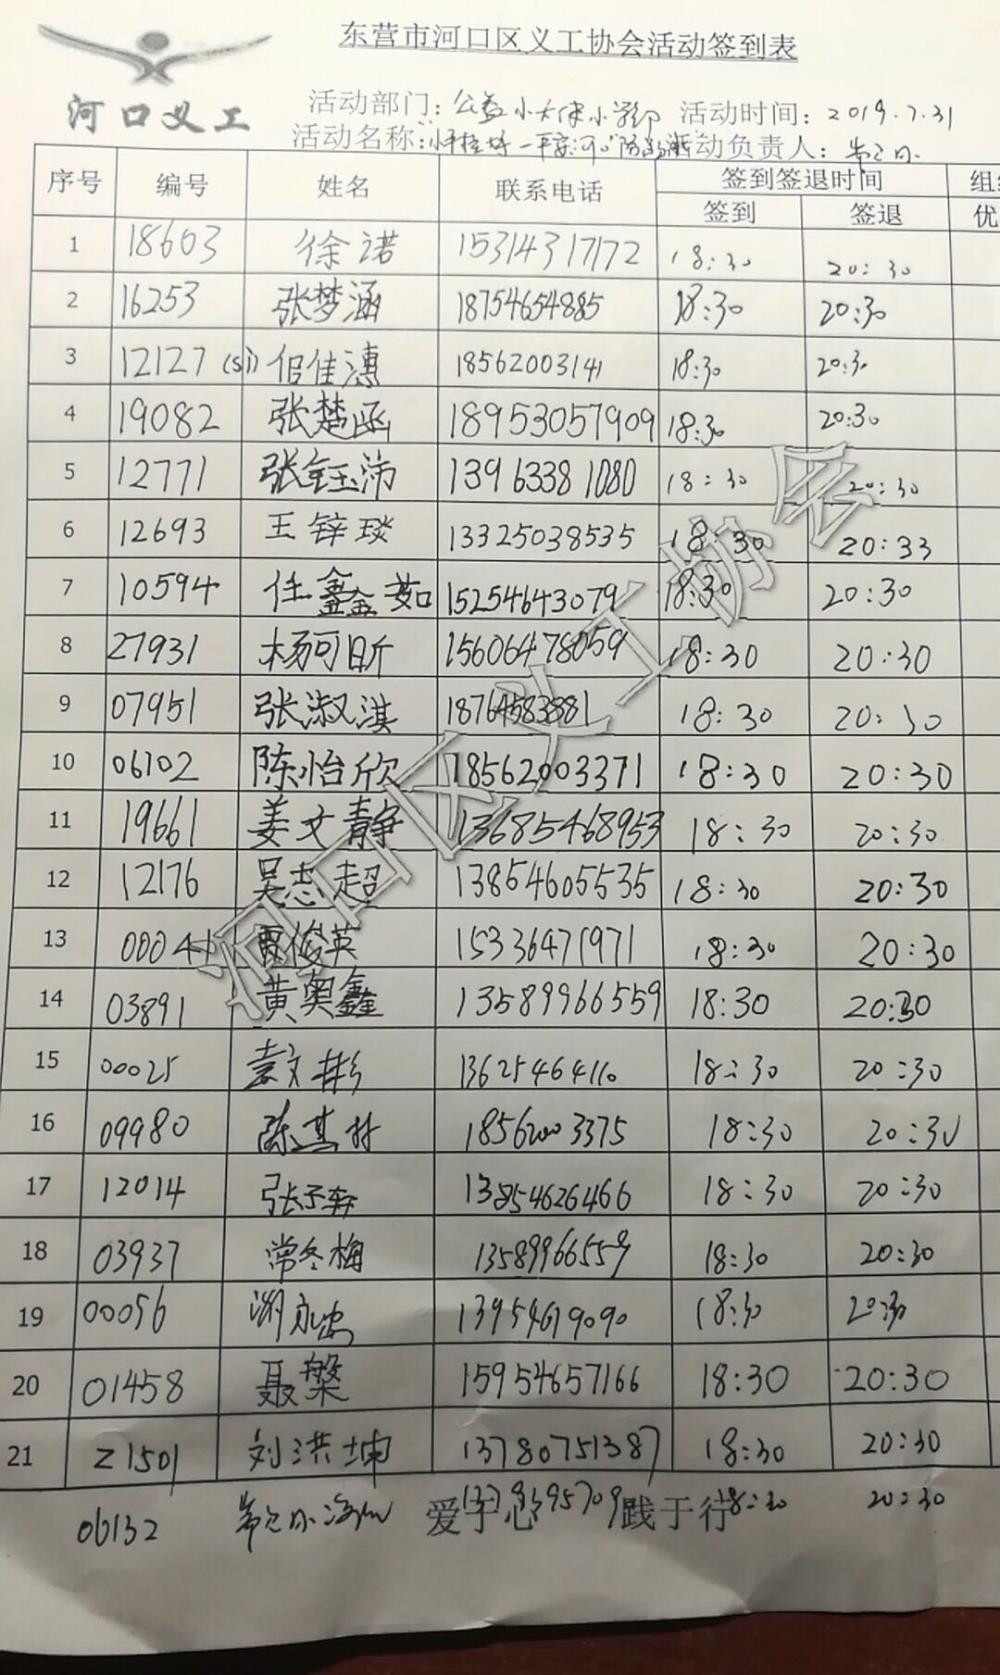 东营市河口区义工协会活动签到表
河口义工
活动部门：公益小大使小 活动时间：2019.7.31
活动名称： 活动负责人：
序号 编号 姓名 联系电话 签到签退时间
签到 签退 优
1 18603 徐诺 15314317172 18:30 20:30
2 16253 张梦涵 18754654885 18:30 20:30
3 12127 佀佳漙 18562003141 18:30 20:30
4 19082 张楚函 18953057909 18:30 20:30
5 12771 张钰沛 13963381080 18:30 20:30
6 12693 王锌琰 13325038535 18:30 20:33
7 10594 任鑫茹 15254643079 18:30 20:30
8 27931 杨可昕 15606478059 18:30 20:30
9 07951 张淑淇 18764583881 18:30 20:30
10 06102 陈怡欣 18562003371 18:30 20:30
11 19661 姜文静 13685468953 18:30 20:30
12 12176 吴志超 13854605535 18:30 20:30
13 俊英 15336471971 18:30 20:30
14 03891 黄奥鑫 13589966559 18:30 20:30
15 00025 袁文彬 13625464110 18:30 20:30
16 09980 陈其林 18562003375 18:30 20:30
17 12014 张子奔 13854626466 18:30 20:30
18 03937 常冬梅 13589966559 18:30 20:30
19 00056 13954619090 18:30 20:30
20 01458 聂槃 15954657166 18:30 20:30
21 21501 刘洪坤 13780751387 18:30 20:30
06132 18:30 20:30
爱于心 践于行
河口区义工协会